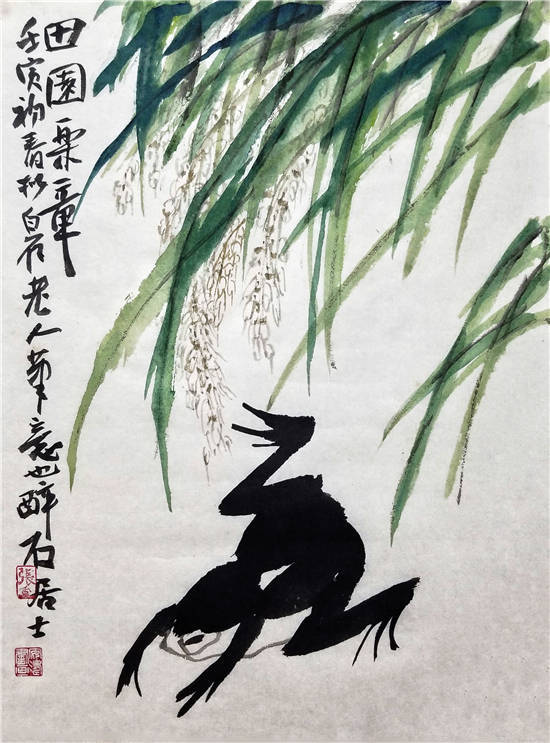 田園樂章
壬寅初春拟白石老人筆意也醉石居士